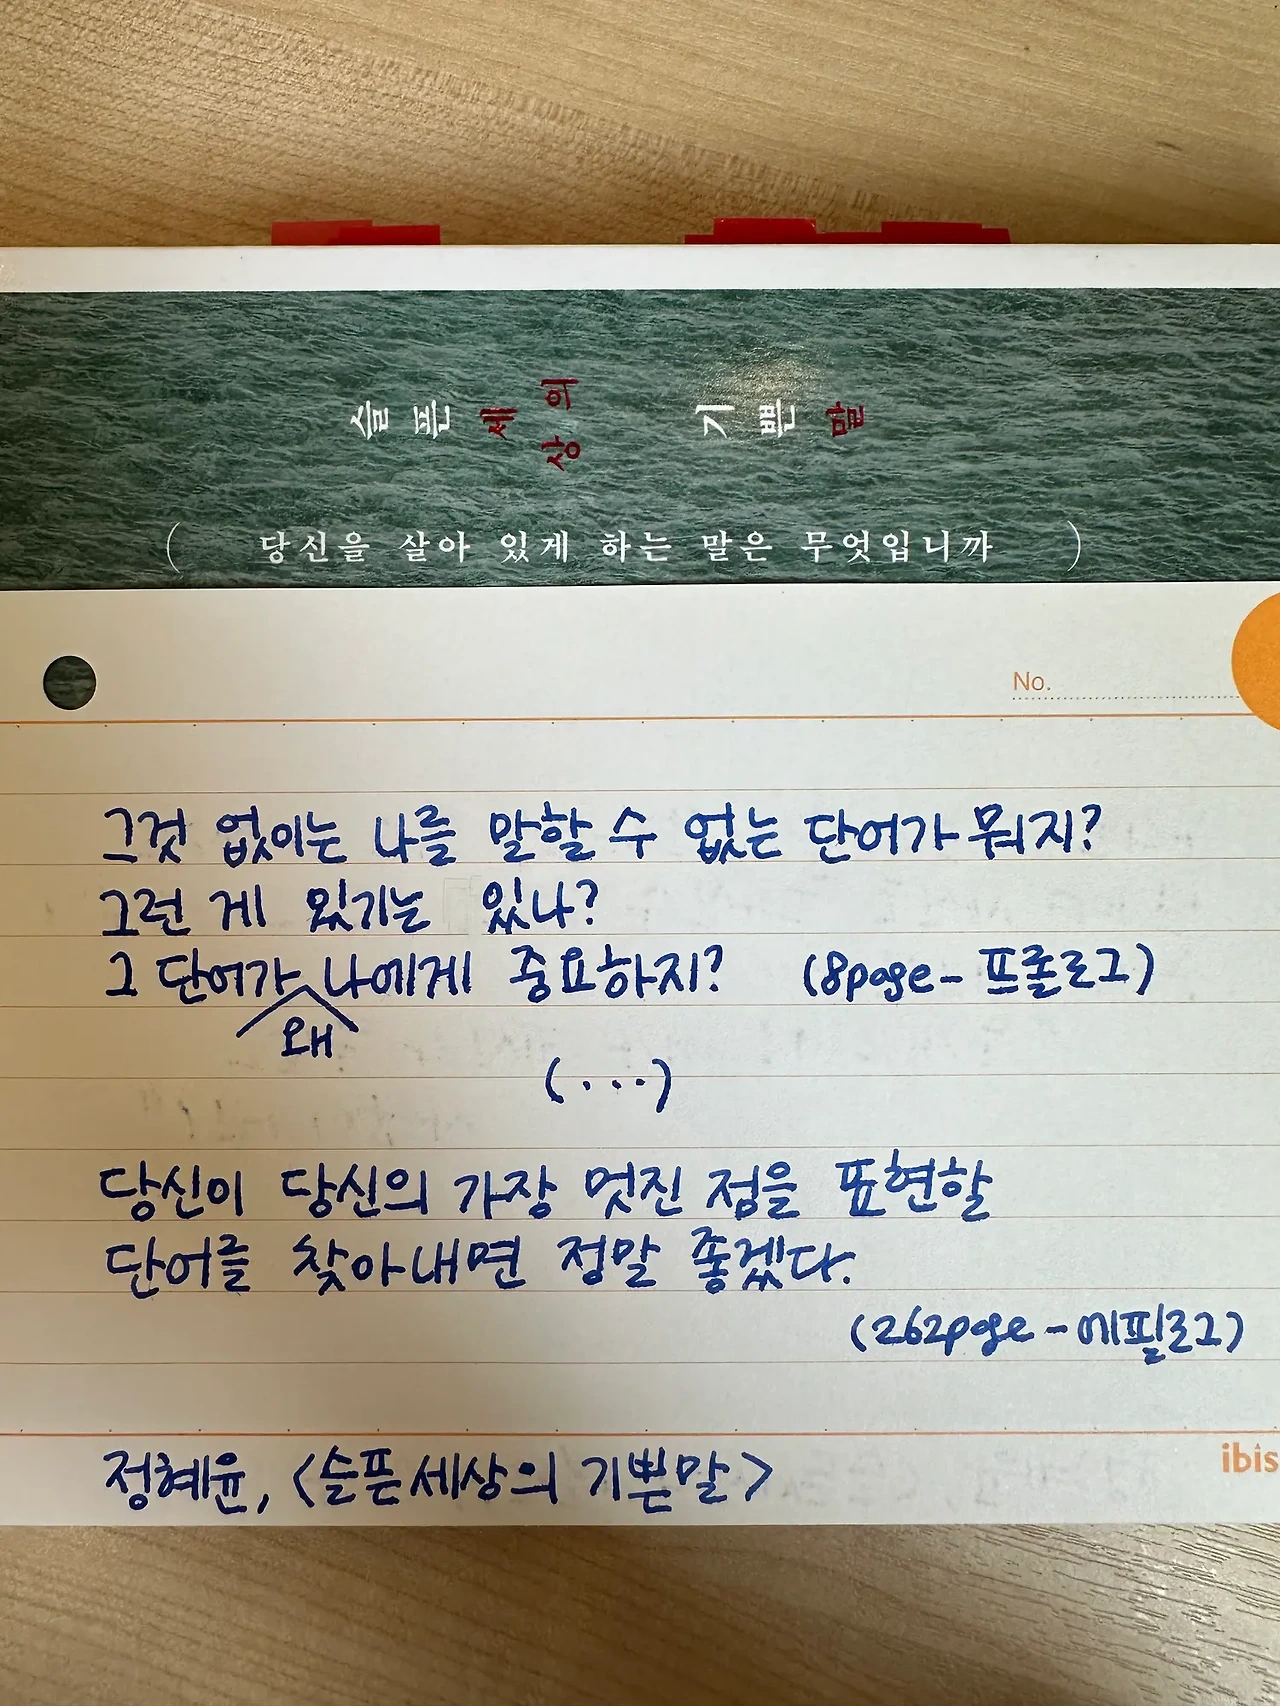 슬픈 세상의 기쁜 말
( 당신을 살아 있게 하는 말은 무엇입니까 )
No.
그것 없이는 나를 말할 수 없는 단어가 뭐지?
그런 게 있기는 있나?
그 단어가 나에게 중요하지? (8page- 프롤로그)
왜
(...)
당신이 당신의 가장 멋진 점을 표현할
단어를 찾아내면 정말 좋겠다.
(262page - 에필로그)
정혜윤, <슬픈 세상의 기쁜 말>
ibis